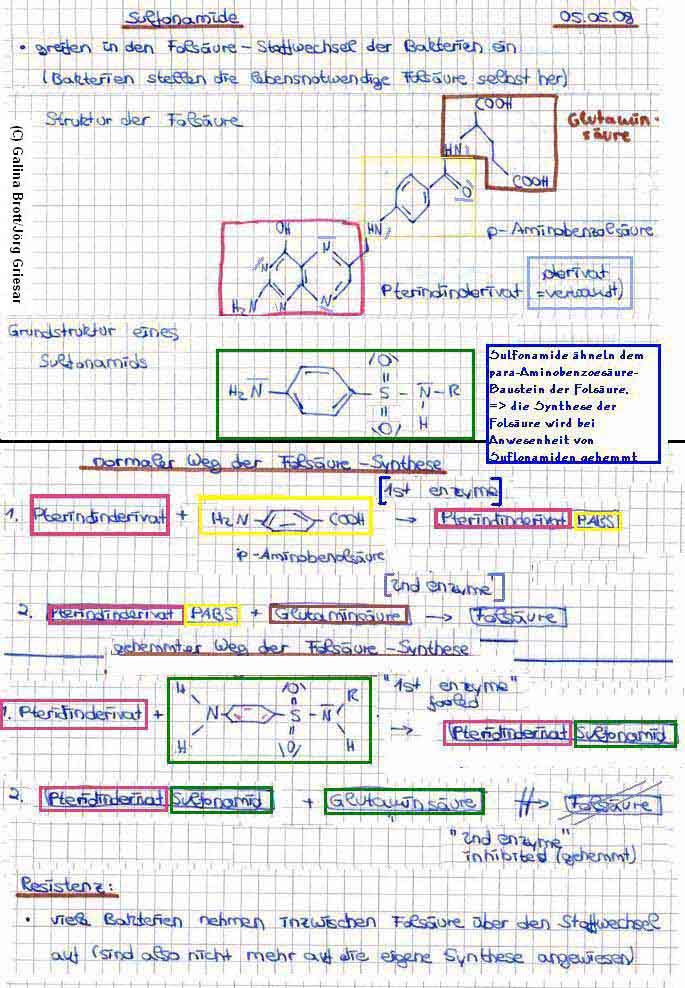 Sulfonamide 05.06.08
• greifen in den Folsäure-Stoffwechsel der Bakterien ein
(Bakterien stellen die lebensnotwendige Folsäure selbst her)
(C) Galina Brott/Jörg Griesar
Struktur der Folsäure
COOH
Glutamin-
säure
HN
COOH
O
p-Aminobenzolsäure
HN
OH
N
N
N
N
H₂N
Pterindinderivat
derivat
=verwandt)
Grundstruktur eines
Sulfonamids
O
H₂N S N-R
O H
Sulfonamide ähneln dem
para-Aminobenzoesäure-
Baustein der Folsäure.
=> die Synthese der
Folsäure wird bei
Anwesenheit von
Suflonamiden gehemmt
normaler Weg der Folsäure-Synthese
[1st enzyme]
1. Pterindinderivat + H₂N COOH → Pterindinderivat PABS
p-Aminobenolsäure
[2nd enzyme]
2. Pterindinderivat PABS + Glutaminsäure → Folsäure
gehemmter Weg der Folsäure-Synthese
H O R
1. Pteridinderivat + N S N
H O H
"1st enzyme"
fooled
→ Pteridinderivat Sulfonamid
2. Pteridinderivat Sulfonamid + Glutaminsäure → Folsäure
"2nd enzyme"
inhibited (gehemmt)
Resistenz:
• viele Bakterien nehmen inzwischen Folsäure über den Stoffwechsel
auf (sind also nicht mehr auf die eigene Synthese angewiesen)